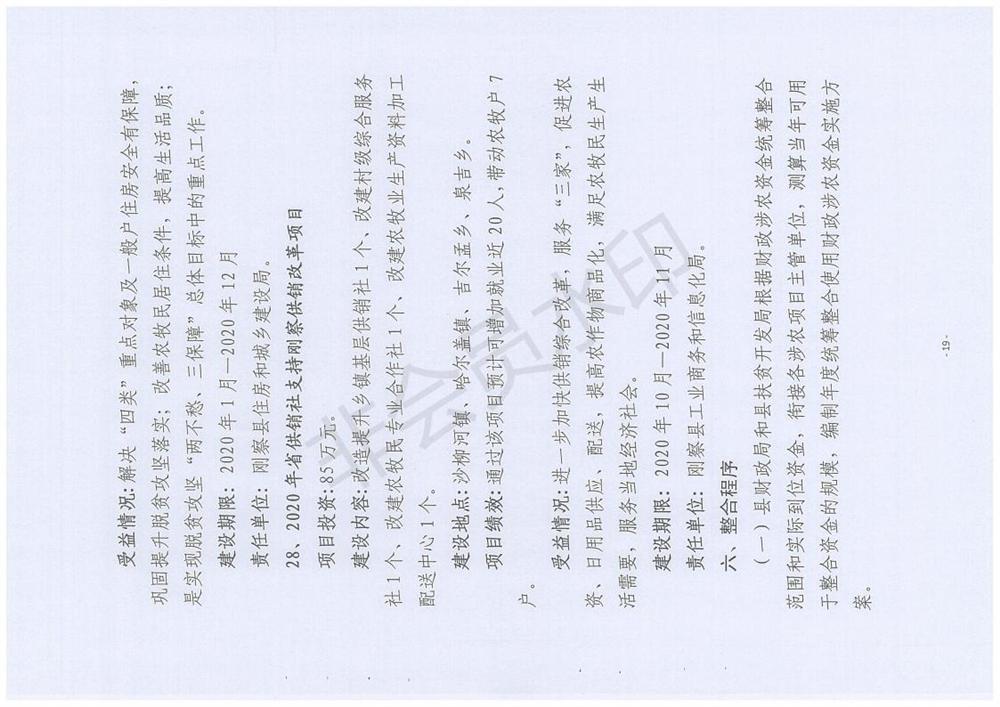 受益情况: 解决“四类”重点对象及一般户住房安全有保障,
巩固提升脱贫攻坚落实; 改善农牧民居住条件, 提高生活品质;
是实现脱贫攻坚“两不愁、三保障”总体目标中的重点工作。
建设期限: 2020年1月—2020年12月
责任单位: 刚察县住房和城乡建设局。
28、2020年省供销社支持刚察供销改革项目
项目投资: 85万元。
建设内容: 改造提升乡镇基层供销社1个、改建村级综合服务
社1个、改建农牧民专业合作社1个、改建农牧业生产资料加工
配送中心1个。
建设地点: 沙柳河镇、哈尔盖镇、吉尔孟乡、泉吉乡。
项目绩效: 通过该项目预计可增加就业近20人, 带动农牧户7
户。
受益情况: 进一步加快供销综合改革, 服务“三家”, 促进农
资、日用品供应、配送, 提高农作物商品化, 满足农牧民生产生
活需要, 服务当地经济社会。
建设期限: 2020年10月—2020年11月
责任单位: 刚察县工业商务和信息化局。
六、整合程序
(一) 县财政局和县扶贫开发局根据财政涉农资金统筹整合
范围和实际到位资金, 衔接各涉农项目主管单位, 测算当年可用
于整合资金的规模, 编制年度统筹整合使用财政涉农资金实施方
案。
-19-
非会员水印